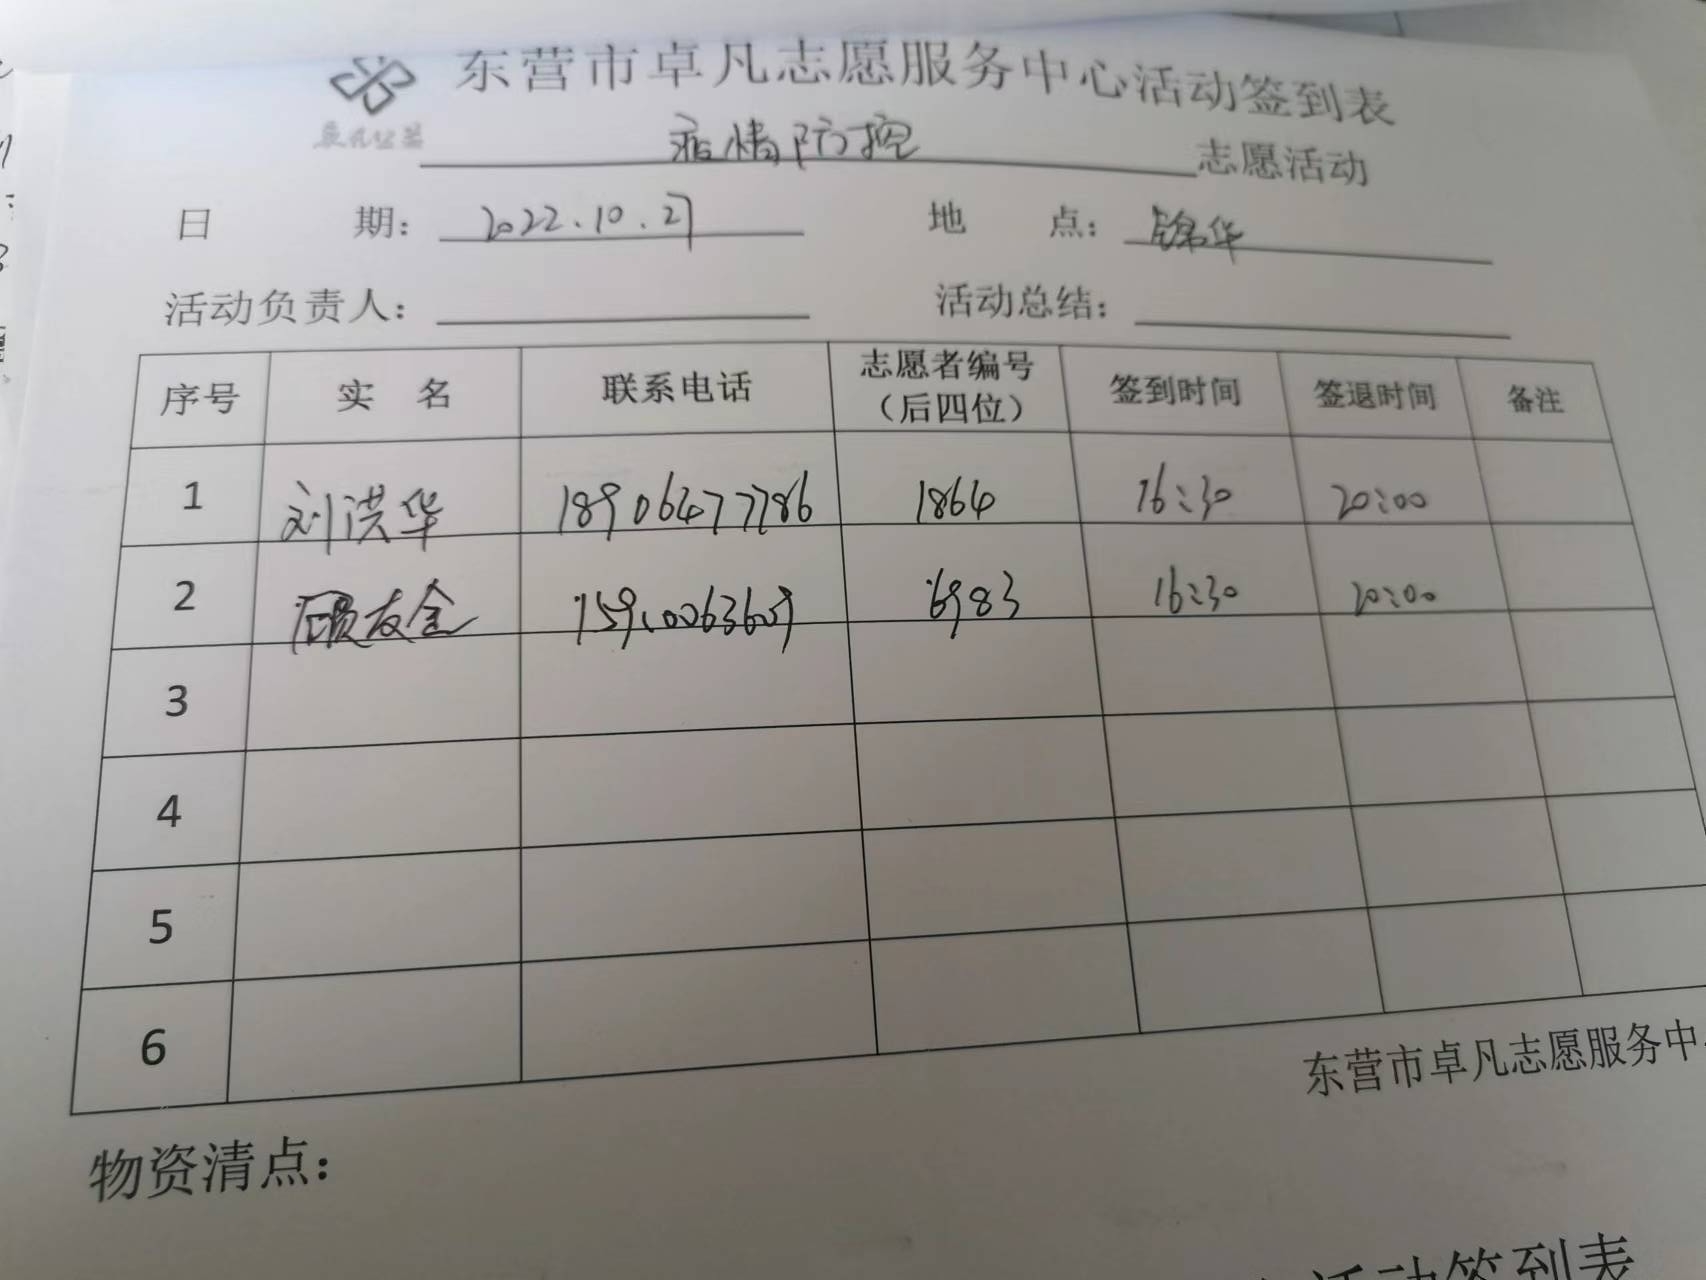 东营市卓凡志愿服务中心活动签到表
卓凡公益
疫情防控 志愿活动
日 期: 2022.10.27 地 点: 锦华
活动负责人: 活动总结:
序号 实 名 联系电话 志愿者编号(后四位) 签到时间 签退时间 备注
1 刘洪华 18906477786 1864 16:30 20:00
2 顾友金 15910063609 6983 16:30 20:00
3
4
5
6
东营市卓凡志愿服务中
物资清点:
活动签到表